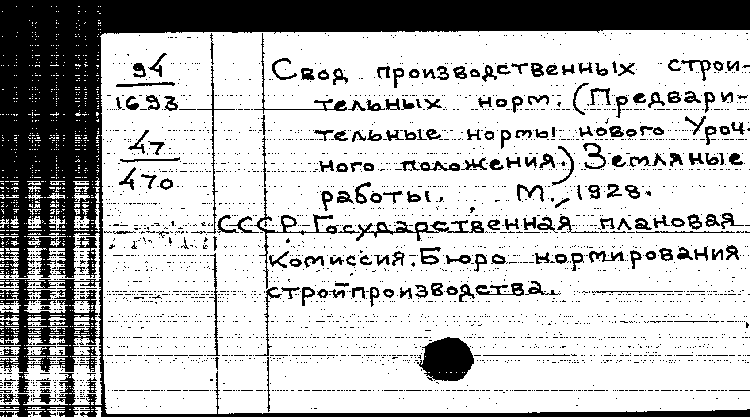 94
1693
47
470
Свод производственных строи-
тельных норм. (Предвари-
тельные нормы нового Уроч-
ного положения.) Земляные
работы. М., 1928.
СССР. Государственная плановая
комиссия. Бюро нормирования
стройпроизводства.